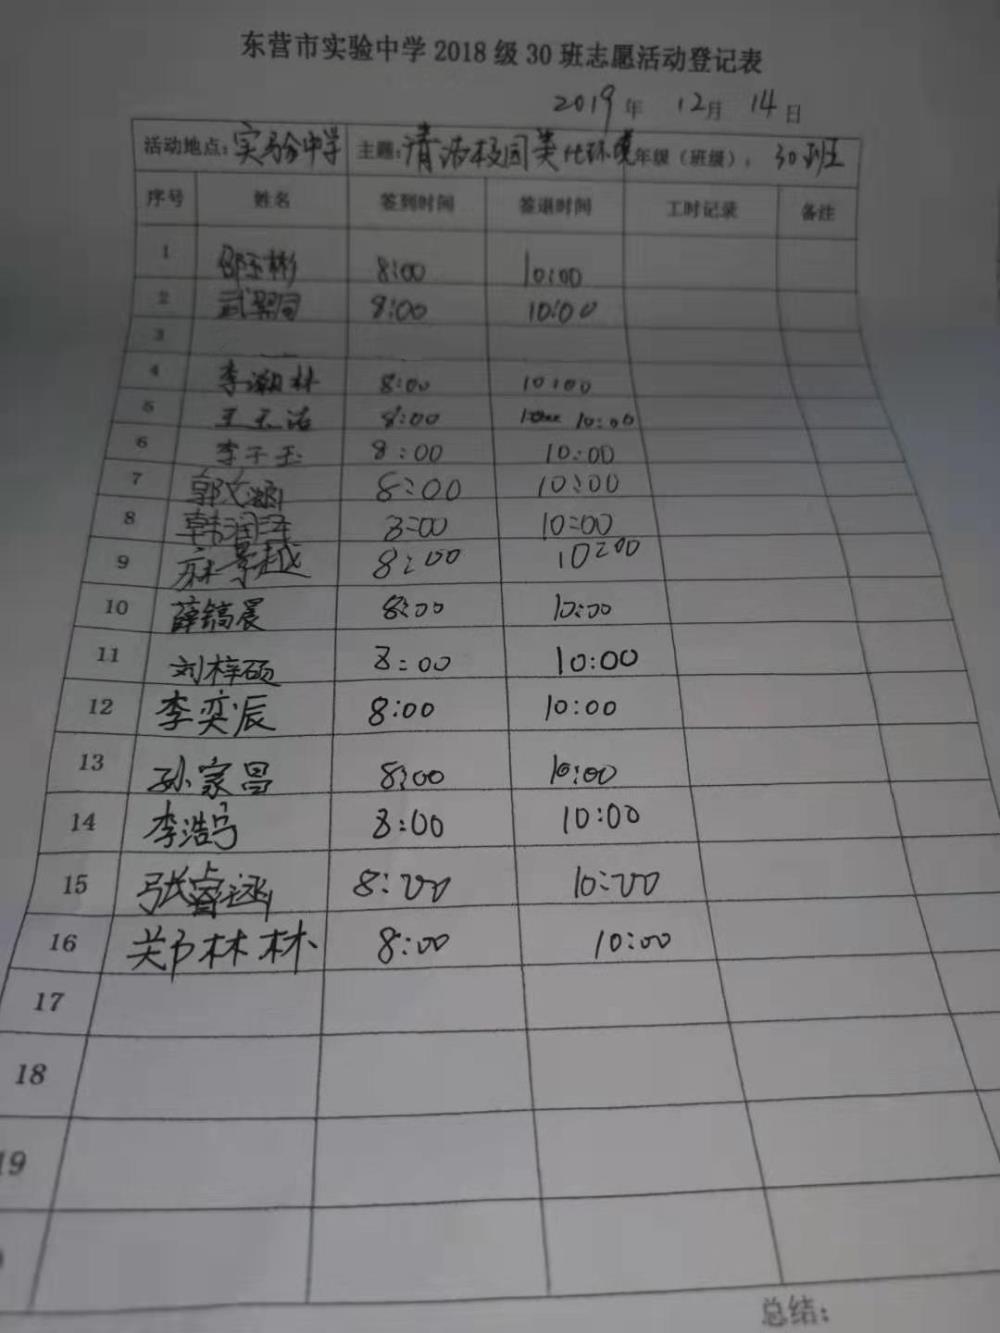 东营市实验中学2018级30班志愿活动登记表
2019年 12月 14日
活动地点：实验中学 主题：清洁校园美化环境 年级（班级）：30班
序号 姓名 签到时间 签退时间 工时记录 备注
1 邵玉彬 8:00 10:00
2 8:00 10:00
3
4 李林 8:00 10:00
5 王玉洁 8:00 10:00
6 李子玉 8:00 10:00
7 郭文涵 8:00 10:00
8 韩润泽 8:00 10:00
9 麻景越 8:00 10:00
10 薛镐晨 8:00 10:00
11 刘梓硕 8:00 10:00
12 李奕辰 8:00 10:00
13 孙家昌 8:00 10:00
14 李浩宁 8:00 10:00
15 张睿涵 8:00 10:00
16 关林林 8:00 10:00
17
18
19
总结：